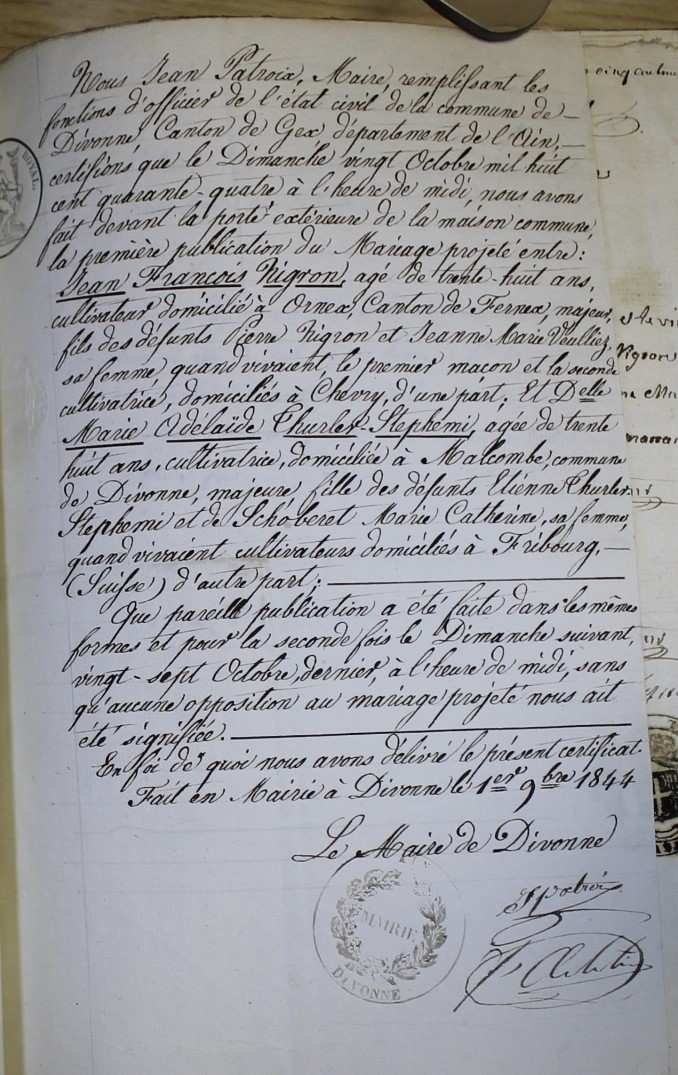 Nous Jean Patroix, Maire, remplissant les
fonctions d'officier de l'état civil de la commune de
Divonne, Canton de Gex département de l'Ain,
certifions que le Dimanche vingt Octobre mil huit
cent quarante-quatre à l'heure de midi, nous avons
fait devant la porte extérieure de la maison commune,
la première publication du Mariage projeté entre:
Jean François Nigron, agé de trente-huit ans,
cultivateur domicilié à Ornex, Canton de Fernex, majeur,
fils des défunts Pierre Nigron et Jeanne Marie Veulliez,
sa femme quand vivaient, le premier maçon et la seconde
cultivatrice, domiciliés à Chevry, d'une part; Et Delle
Marie Adélaïde Thurler-Stephemi, agée de trente
huit ans, cultivatrice, domiciliée à Malcombe, commune
de Divonne, majeure fille des défunts Etienne Thurler-
Stephemi et de Schoberet Marie Catherine, sa femme,
quand vivaient cultivateurs domiciliés à Fribourg,
(Suisse) d'autre part;
Que pareille publication a été faite dans les mêmes
formes et pour la seconde fois le Dimanche suivant,
vingt-sept Octobre, dernier, à l'heure de midi, sans
qu'aucune opposition au mariage projeté nous ait
été signifiée.
En foi de quoi nous avons délivré le présent certificat.
Fait en Mairie à Divonne le 1er 9bre 1844
Le Maire de Divonne
MAIRIE
DIVONNE
ROYAL